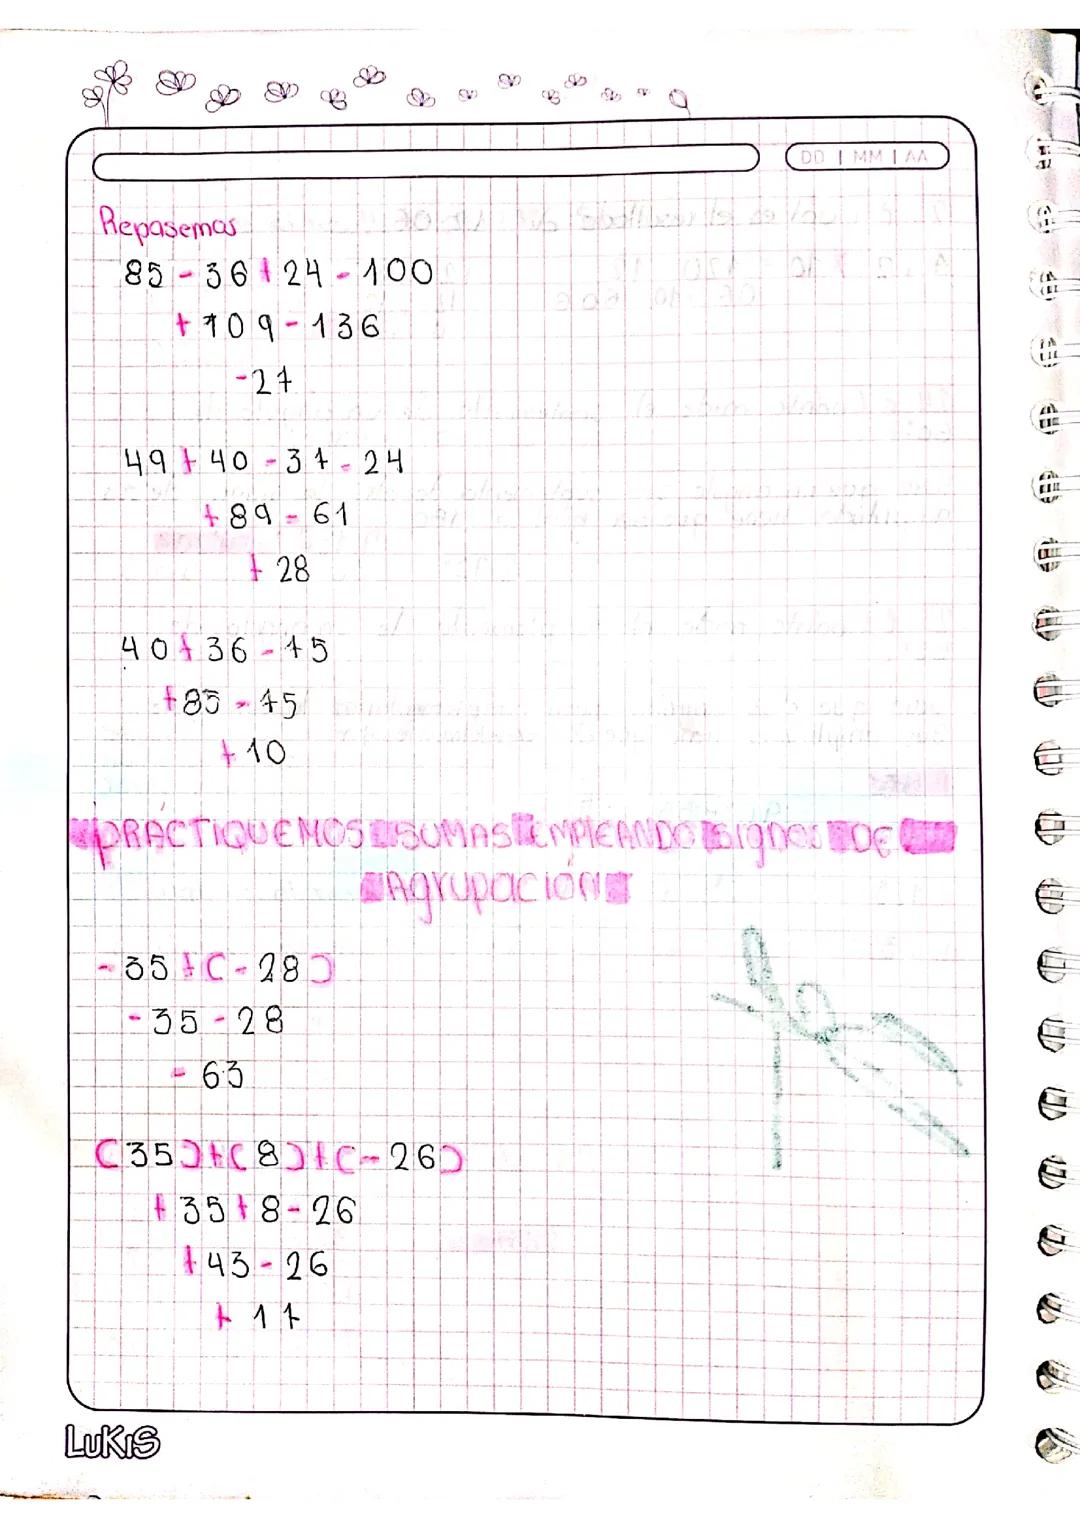 DD | MM | AA
Repasemos
85 - 36 + 24 - 100
+ 109 - 136
-27
49 + 40 - 37 - 24
+ 89 - 61
+ 28
40 + 36 - 75
+85 - 75
+ 10
PRÁCTIQUEMOS SUMAS EMPLEANDO SIGNOS DE
AGRUPACIÓN
- 35 + (-28)
- 35 - 28
- 63
(35) + (8) + (-26)
+ 35 + 8 - 26
+ 43 - 26
+ 17
LUKIS